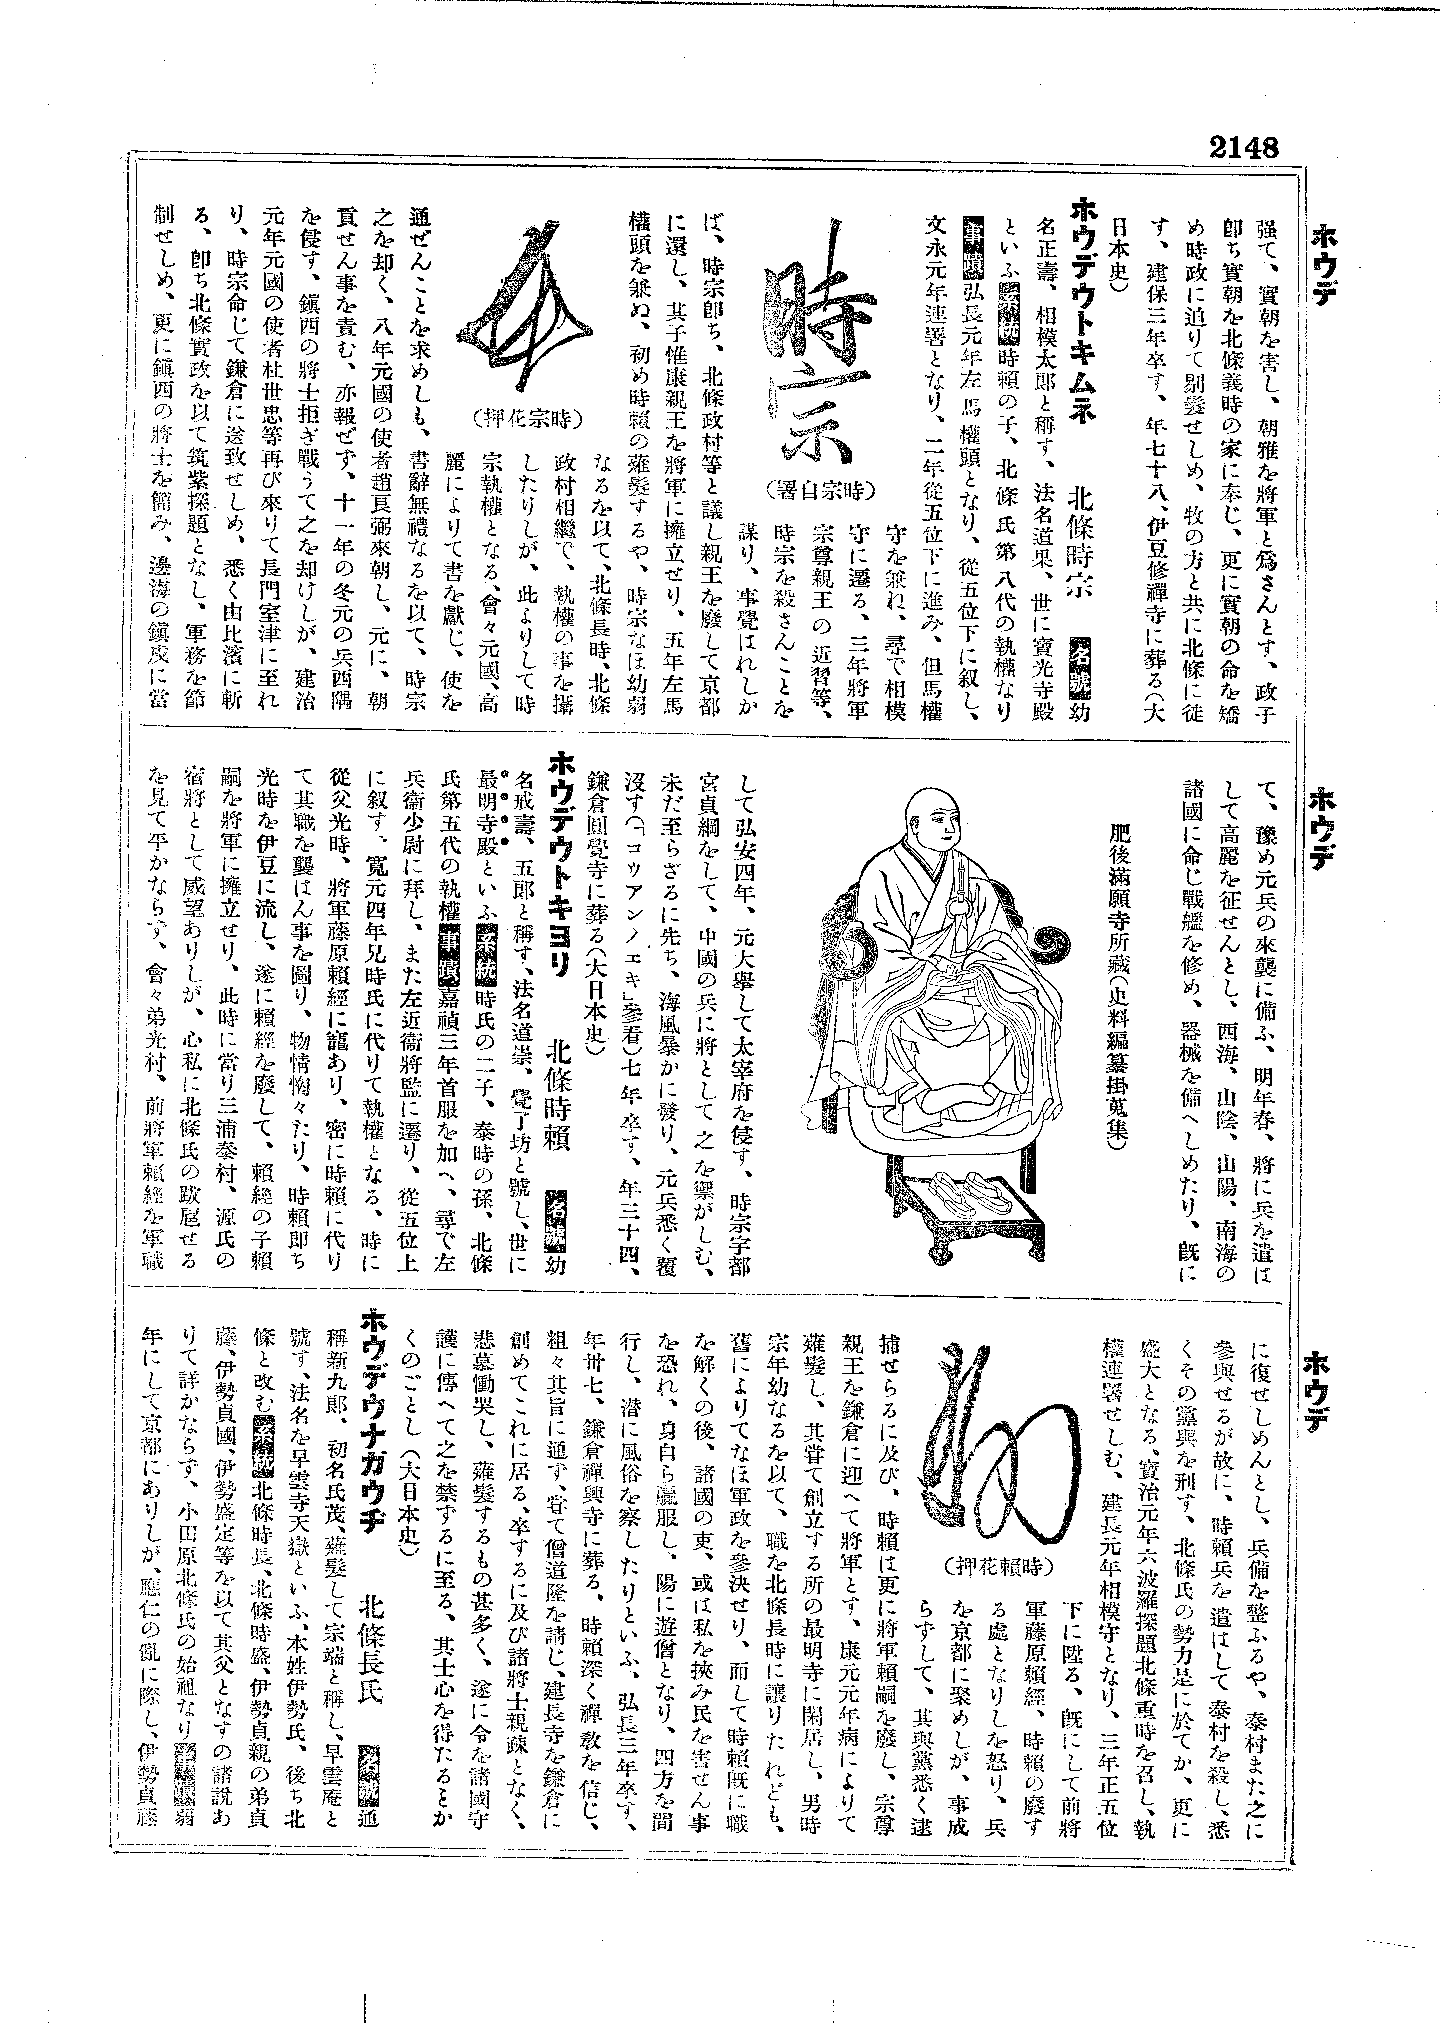 2148
ホウデ
强て、實朝を害し、朝雅を將軍と爲さんとす、政子
卽ち實朝を北條義時の家に奉じ、更に實朝の命を矯
め時政に迫りて剔髮せしめ、牧の方と共に北條に徒
す、建保三年卒す、年七十八、伊豆修禪寺に葬る(大
日本史)
ホウデウトキムネ 北條時宗 名號幼
名正壽、相模太郎と稱す、法名道杲、世に寶光寺殿
といふ系統時賴の子、北條氏第八代の執權なり
事蹟弘長元年左馬權頭となり、從五位下に叙し、
文永元年連署となり、二年從五位下に進み、但馬權
守を兼ね、尋で相模
守に遷る、三年將軍
宗尊親王の近習等、
時宗を殺さんことを
謀り、事覺はれしか
時宗
(時宗自署)
ば、時宗卽ち、北條政村等と議し親王を廢して京都
に還し、其子惟康親王を將軍に擁立せり、五年左馬
權頭を兼ぬ、初め時賴の薙髮するや、時宗なほ幼弱
なるを以て、北條長時、北條
政村相繼で、執權の事を攝
したりしが、此よりして時
宗執權となる、會々元國、高
麗によりて書を獻じ、使を
(時宗花押)
通ぜんことを求めしも、書辭無禮なるを以て、時宗
之を却く、八年元國の使者趙良弼來朝し、元に、朝
貢せん事を責む、亦報ぜず、十一年の冬元の兵西隅
を侵す、鎭西の將士拒ぎ戰うて之を却けしが、建治
元年元國の使者杜世忠等再び來りて長門室津に至れ
り、時宗命じて鎌倉に送致せしめ、悉く由比濱に斬
る、卽ち北條實政を以て筑紫探題となし、軍務を節
制せしめ、更に鎭西の將士を簡み、邊海の鎭戍に當
ホウデ
て、豫め元兵の來襲に備ふ、明年春、將に兵を遣は
して高麗を征せんとし、西海、山陰、山陽、南海の
諸國に命じ戰艦を修め、器械を備へしめたり、旣に
肥後滿願寺所藏(史料編纂掛蒐集)
して弘安四年、元大擧して太宰府を侵す、時宗宇都
宮貞綱をして、中國の兵に將として之を禦がしむ、
未だ至らざるに先ち、海風暴かに發り、元兵悉く覆
沒す(「コウアンノエキ」參看)七年卒す、年三十四、
鎌倉圓覺寺に葬る(大日本史)
ホウデウトキヨリ 北條時賴 名號幼
名戒壽、五郎と稱す、法名道崇、覺了坊と號し、世に
最明寺殿といふ系統時氏の二子、泰時の孫、北條
氏第五代の執權事蹟嘉禎三年首服を加へ、尋で左
兵衞少尉に拜し、また左近衞將監に遷り、從五位上
に叙す、寬元四年兄時氏に代りて執權となる、時に
從父光時、將軍藤原賴經に寵あり、密に時賴に代り
て其職を襲はん事を圖り、物情恟々たり、時賴卽ち
光時を伊豆に流し、遂に賴經を廢して、賴經の子賴
嗣を將軍に擁立せり、此時に當り三浦泰村、源氏の
宿將として威望ありしが、心私に北條氏の跋扈せる
を見て平かならず、會々弟光村、前將軍賴經を軍職
ホウデ
に復せしめんとし、兵備を整ふるや、泰村また之に
參與せるが故に、時賴兵を遣はして泰村を殺し、悉
くその黨與を刑す、北條氏の勢力是に於てか、更に
盛大となる、寶治元年六波羅探題北條重時を召し、執
權連署せしむ、建長元年相模守となり、三年正五位
下に陞る、旣にして前將
軍藤原賴經、時賴の廢す
る處となりしを怒り、兵
を京都に聚めしが、事成
らずして、其與黨悉く逮
(時賴花押)
捕せらるに及び、時賴は更に將軍賴嗣を廢し、宗尊
親王を鎌倉に迎へて將軍とす、康元元年病によりて
薙髮し、其甞て創立する所の最明寺に閑居し、男時
宗年幼なるを以て、職を北條長時に讓りたれども、
舊によりてなほ軍政を參決せり、而して時賴旣に職
を解くの後、諸國の吏、或は私を挾み民を害せん事
を恐れ、身自ら麤服し、陽に遊僧となり、四方を間
行し、潛に風俗を察したりといふ、弘長三年卒す、
年卅七、鎌倉禪興寺に葬る、時賴深く禪敎を信じ、
粗々其旨に通ず、甞て僧道隆を請じ、建長寺を鎌倉に
創めてこれに居る、卒するに及び諸將士親疎となく、
悲慕慟哭し、薙髮するもの甚多く、遂に令を諸國守
護に傳へて之を禁ずるに至る、其士心を得たるとか
くのごとし(大日本史)
ホウデウナガウヂ 北條長氏 名號通
稱新九郎、初名氏茂、薙髮して宗瑞と稱し、早雲庵と
號す、法名を早雲寺天嶽といふ、本姓伊勢氏、後ち北
條と改む系統北條時長、北條時盛、伊勢貞親の弟貞
藤、伊勢貞國、伊勢盛定等を以て其父となすの諸說あ
りて詳かならず、小田原北條氏の始祖なり事蹟弱
年にして京都にありしが、應仁の亂に際し、伊勢貞藤